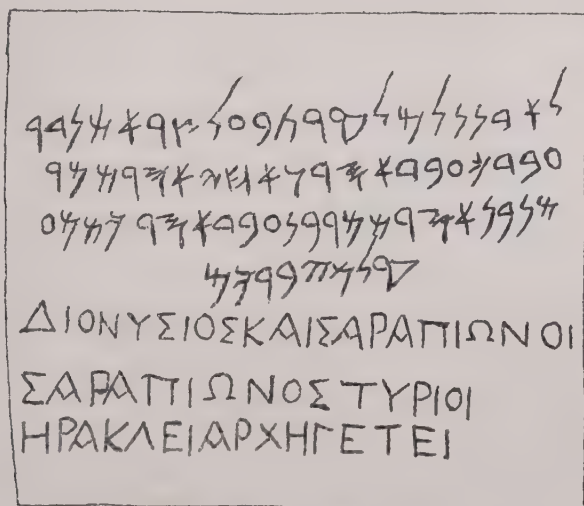 𐤋𐤀𐤃𐤍𐤍𐤋𐤌𐤋𐤒𐤓𐤕𐤁𐤏𐤋𐤑𐤓𐤀𐤔𐤍𐤃𐤓
𐤏𐤁𐤃𐤊𐤏𐤁𐤃𐤀𐤎𐤓𐤅𐤀𐤇𐤉𐤀𐤎𐤓𐤔𐤌𐤓
𐤔𐤍𐤁𐤍𐤀𐤎𐤓𐤔𐤌𐤓𐤁𐤍𐤏𐤁𐤃𐤀𐤎𐤓𐤊𐤔𐤌𐤏
𐤒𐤋𐤌𐤉𐤁𐤓𐤊𐤌
ΔΙΟΝΥΣΙΟΣΚΑΙΣΑΡΑΠΙΩΝΟΙ
ΣΑΡΑΠΙΩΝΟΣΤΥΡΙΟΙ
ΗΡΑΚΛΕΙΑΡΧΗΓΕΤΕΙ